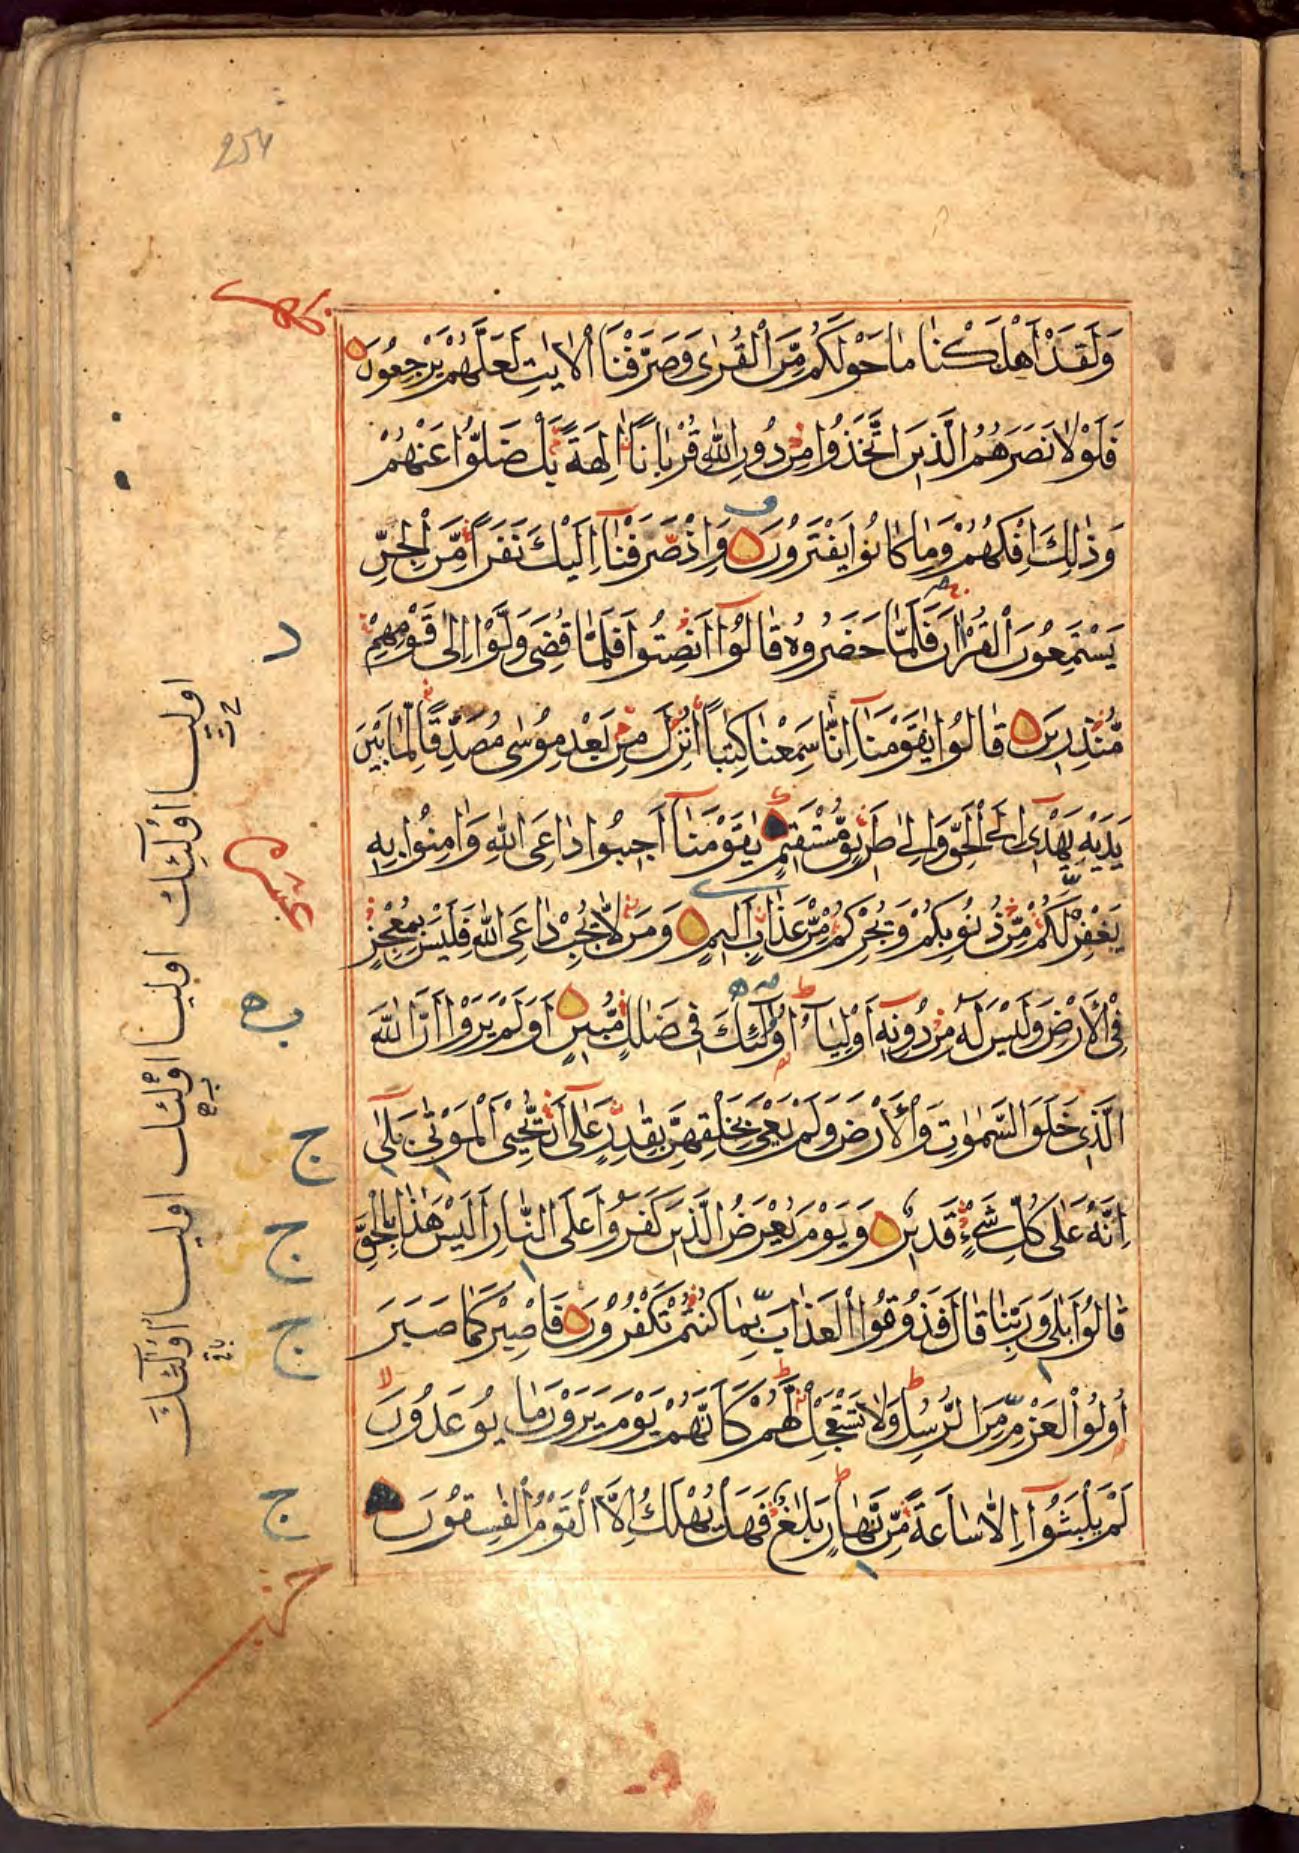 254
وَلَقَدْ اَهْلَكْنَا مَا حَوْلَكُمْ مِّنَ الْقُرٰى وَصَرَّفْنَا الْاٰيٰتِ لَعَلَّهُمْ يَرْجِعُوْنَ
فَلَوْلَا نَصَرَهُمُ الَّذِيْنَ اتَّخَذُوْا مِنْ دُوْنِ اللّٰهِ قُرْبَانًا اٰلِهَةً بَلْ ضَلُّوْا عَنْهُمْ
وَذٰلِكَ اِفْكُهُمْ وَمَا كَانُوْا يَفْتَرُوْنَ وَاِذْ صَرَفْنَآ اِلَيْكَ نَفَرًا مِّنَ الْجِنِّ
يَسْتَمِعُوْنَ الْقُرْاٰنَ فَلَمَّا حَضَرُوْهُ قَالُوْٓا اَنْصِتُوْا فَلَمَّا قُضِيَ وَلَّوْا اِلٰى قَوْمِهِمْ
مُّنْذِرِيْنَ قَالُوْا يٰقَوْمَنَآ اِنَّا سَمِعْنَا كِتٰبًا اُنْزِلَ مِنْ بَعْدِ مُوْسٰى مُصَدِّقًا لِّمَا بَيْنَ
يَدَيْهِ يَهْدِيْٓ اِلَى الْحَقِّ وَاِلٰى طَرِيْقٍ مُّسْتَقِيْمٍ يٰقَوْمَنَآ اَجِيْبُوْا دَاعِيَ اللّٰهِ وَاٰمِنُوْا بِهِ
يَغْفِرْ لَكُمْ مِّنْ ذُنُوْبِكُمْ وَيُجِرْكُمْ مِّنْ عَذَابٍ اَلِيْمٍ وَمَنْ لَّا يُجِبْ دَاعِيَ اللّٰهِ فَلَيْسَ بِمُعْجِزٍ
فِي الْاَرْضِ وَلَيْسَ لَهٗ مِنْ دُوْنِهٖٓ اَوْلِيَآءُ اُولٰٓئِكَ فِيْ ضَلٰلٍ مُّبِيْنٍ اَوَلَمْ يَرَوْا اَنَّ اللّٰهَ
الَّذِيْ خَلَقَ السَّمٰوٰتِ وَالْاَرْضَ وَلَمْ يَعْيَ بِخَلْقِهِنَّ بِقٰدِرٍ عَلٰٓى اَنْ يُّحْيِيَ الْمَوْتٰى بَلٰٓى
اِنَّهٗ عَلٰى كُلِّ شَيْءٍ قَدِيْرٌ وَيَوْمَ يُعْرَضُ الَّذِيْنَ كَفَرُوْا عَلَى النَّارِ اَلَيْسَ هٰذَا بِالْحَقِّ
قَالُوْا بَلٰى وَرَبِّنَا قَالَ فَذُوْقُوا الْعَذَابَ بِمَا كُنْتُمْ تَكْفُرُوْنَ فَاصْبِرْ كَمَا صَبَرَ
اُولُوا الْعَزْمِ مِنَ الرُّسُلِ وَلَا تَسْتَعْجِلْ لَّهُمْ كَاَنَّهُمْ يَوْمَ يَرَوْنَ مَا يُوْعَدُوْنَ
لَمْ يَلْبَثُوْٓا اِلَّا سَاعَةً مِّنْ نَّهَارٍ بَلٰغٌ فَهَلْ يُهْلَكُ اِلَّا الْقَوْمُ الْفٰسِقُوْنَ
اوليا اولٓئك اوليا اولئك اوليا اولٓئك
ج
ج
ج
ج